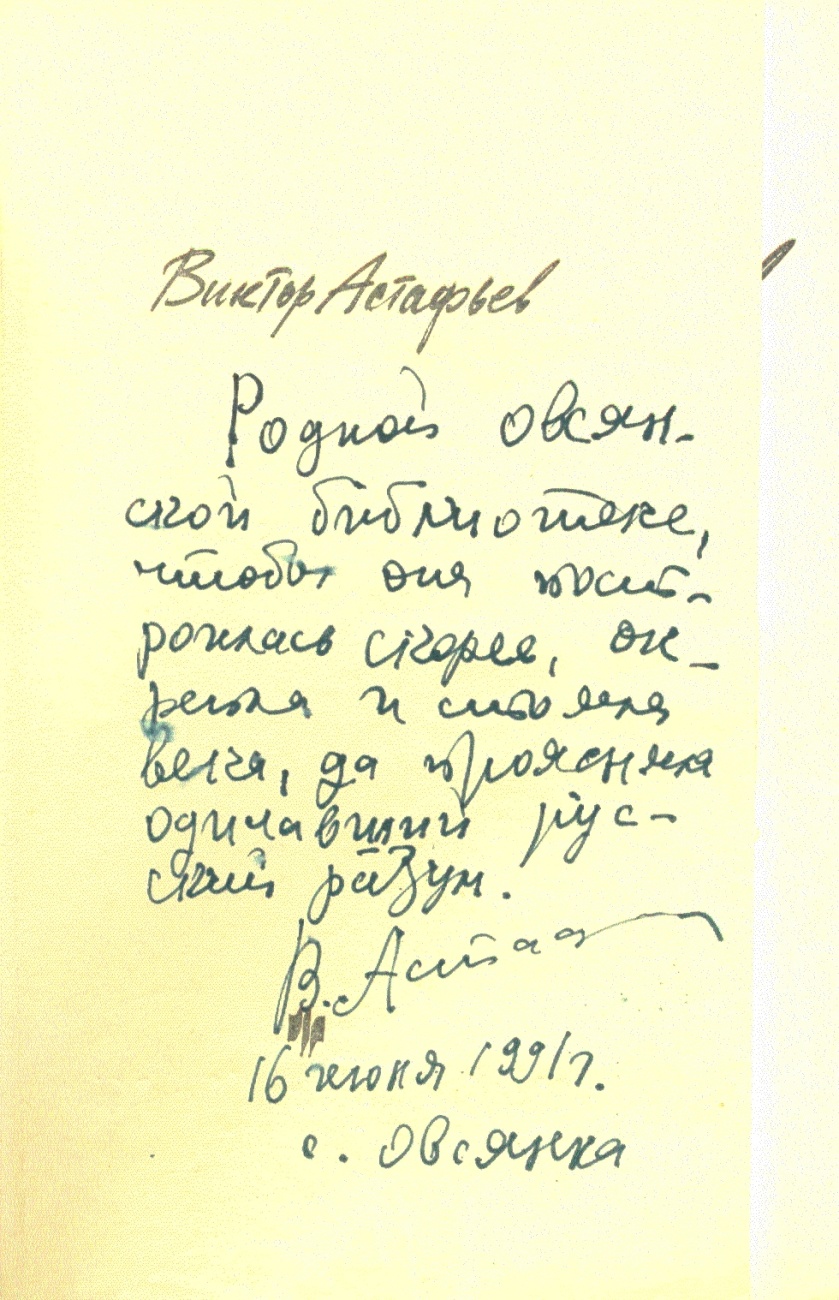 Виктор Астафьев
Родной овсян-
ской библиотеке,
чтобы она пост-
роилась скорее, ок-
репла и стояла
века, да проясняла
одичавший рус-
ский разум.
В. Аста
16 июня 1991г.
с. Овсянка